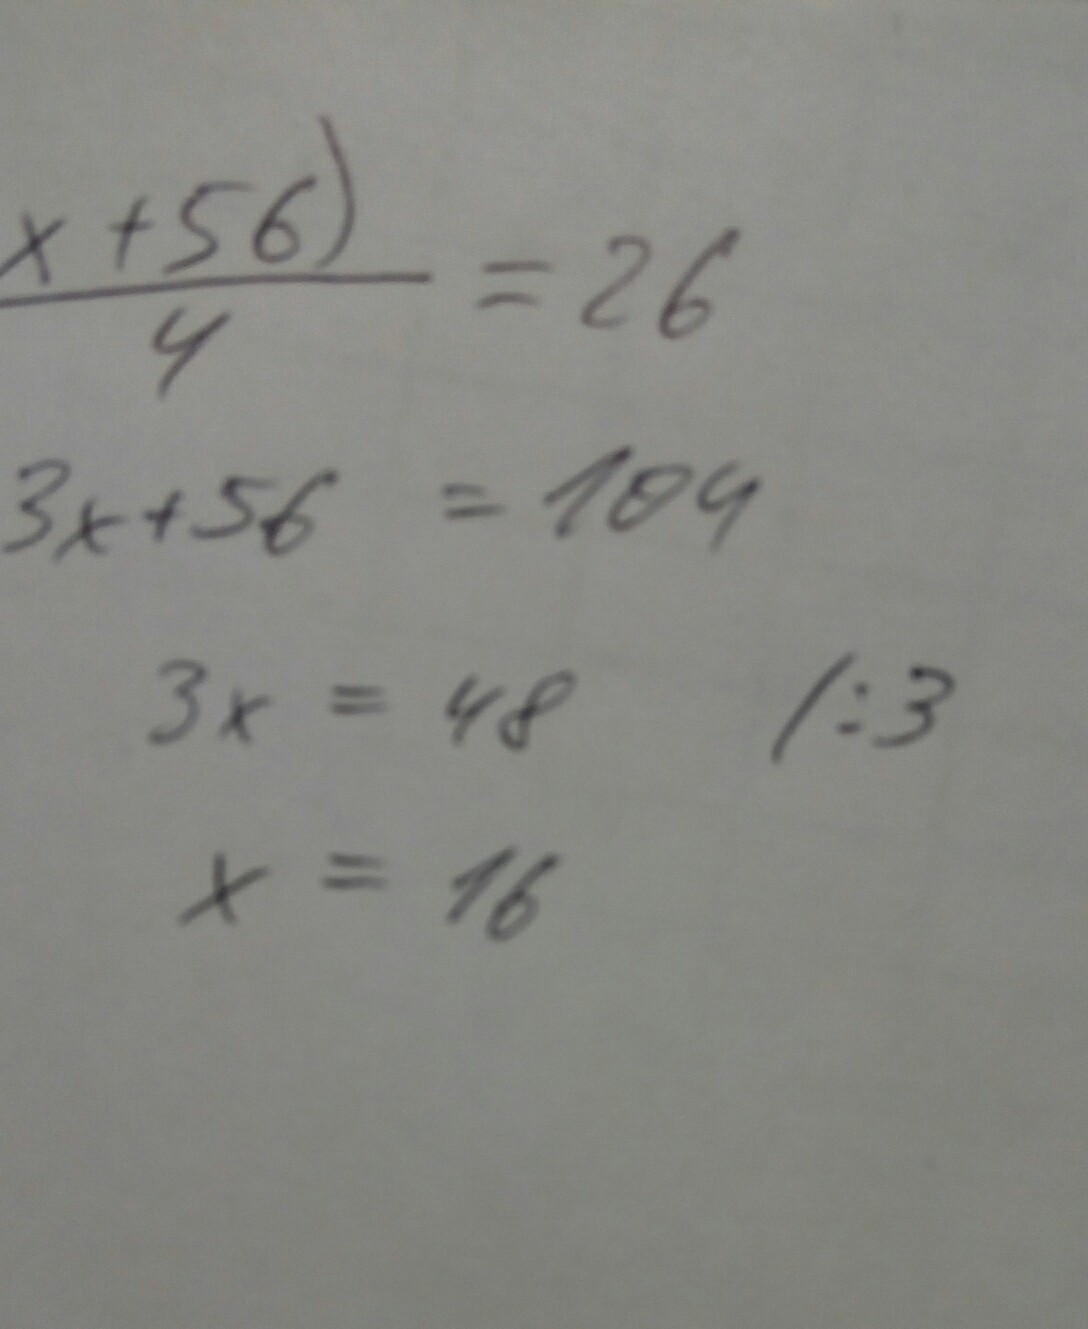 x+56)
4
=26
3x+56 = 104
3x = 48 /:3
x = 16